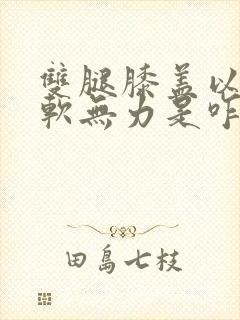 雙腿膝盖以
軟無力是咋
田島七枝